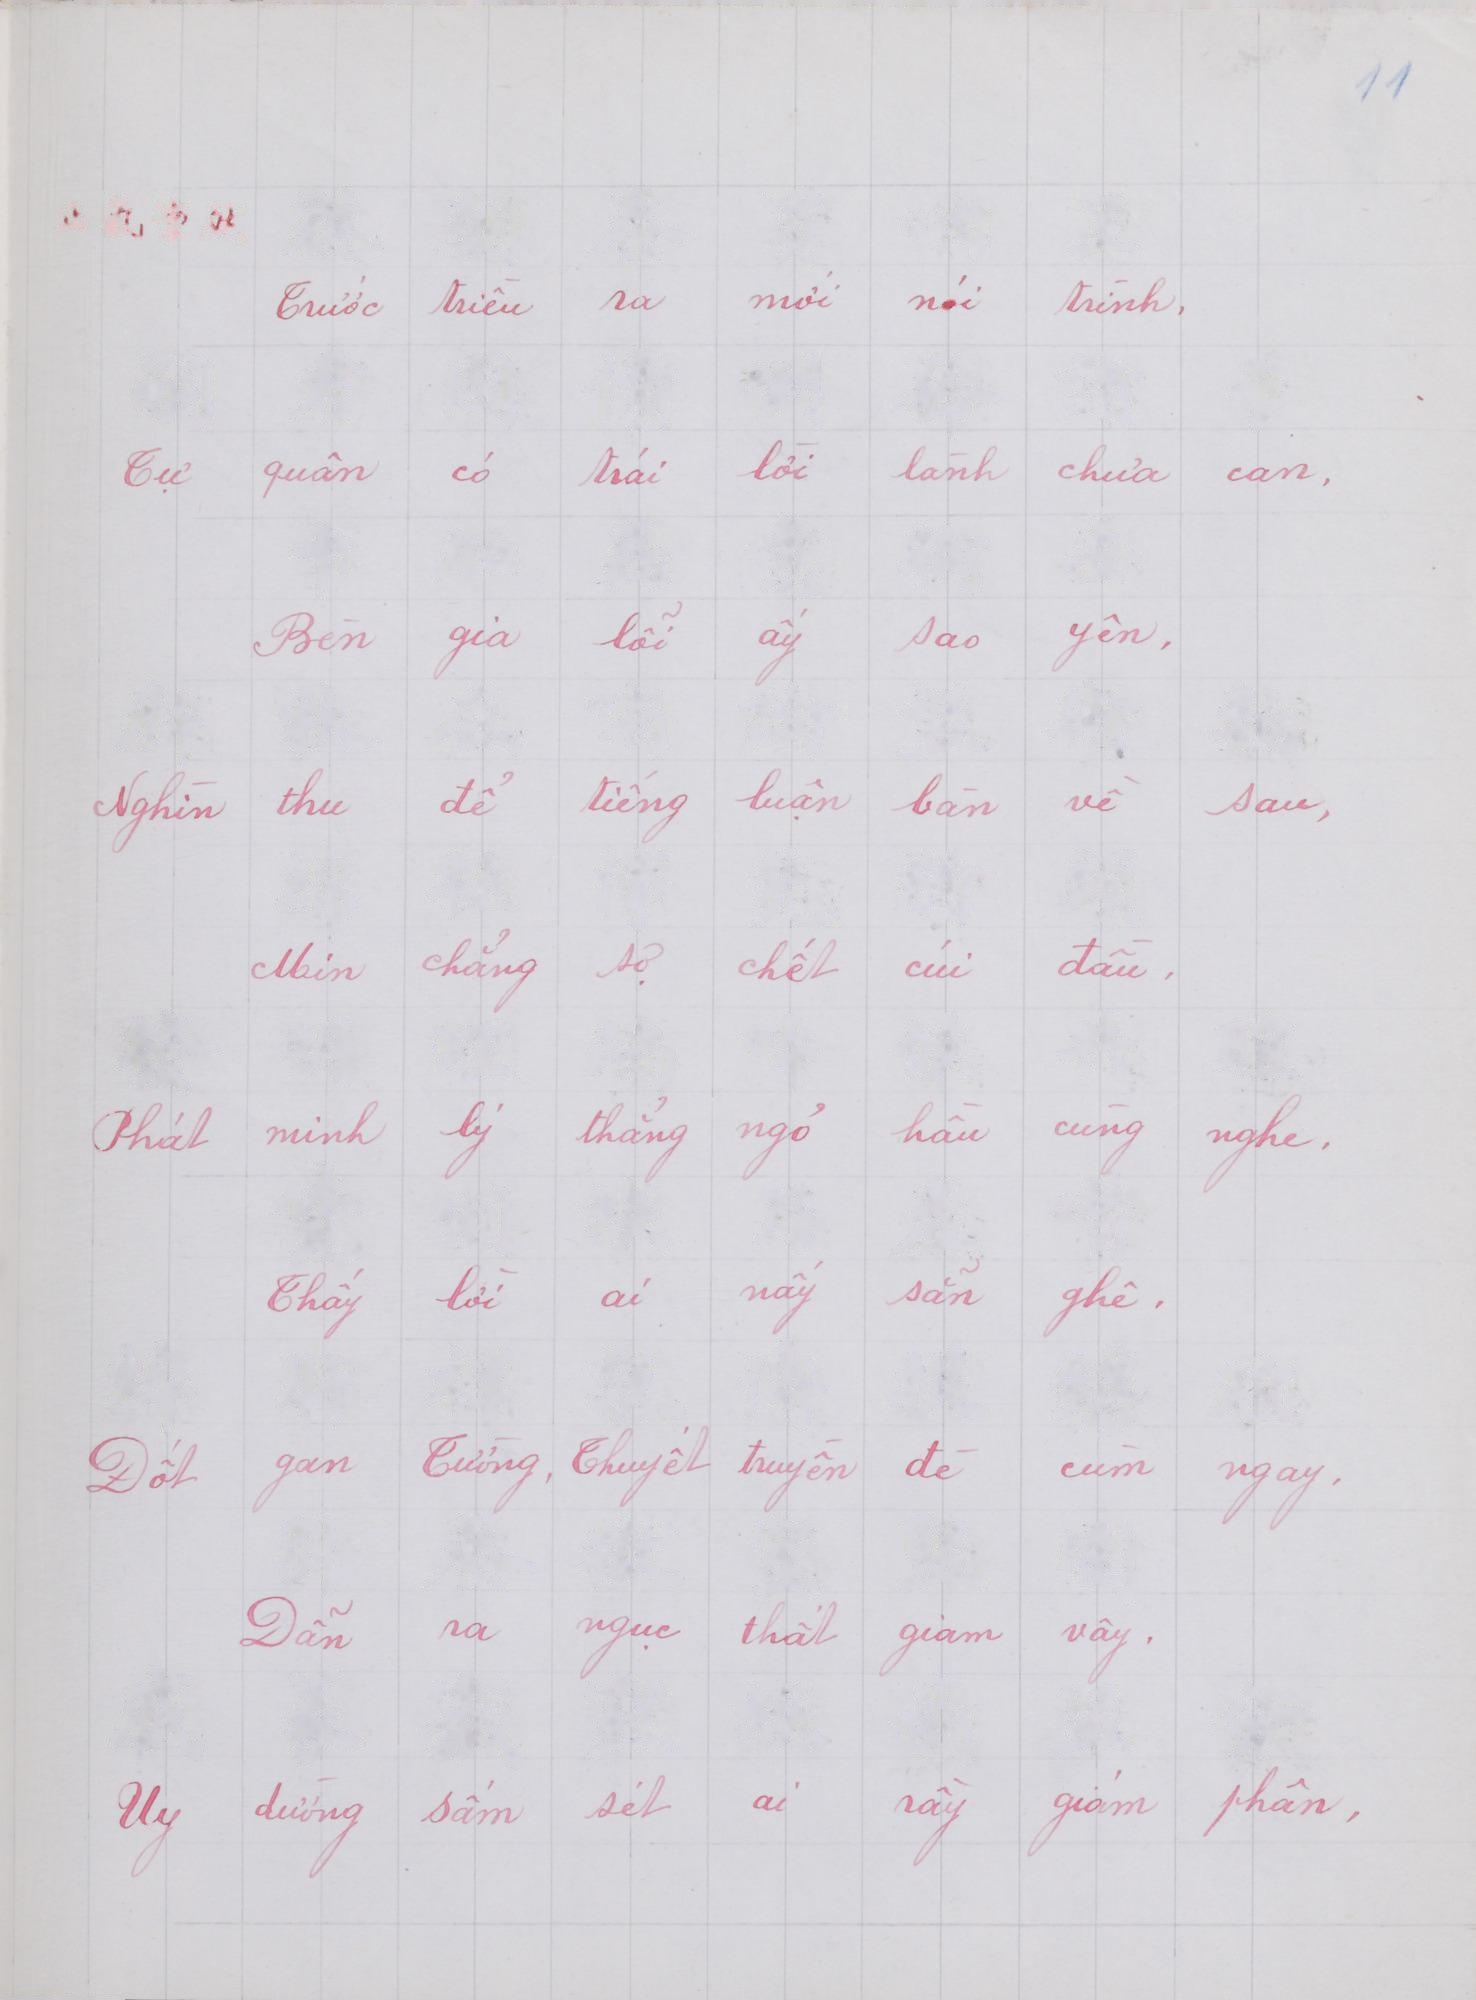 11
Trước triều ra mới nói trình.
Tự quân có trái lời lành chưa can,
Bèn gia lỗi ấy sao yên.
Nghìn thu để tiếng luận bàn về sau,
Min chẳng sợ chết cúi đầu.
Phát minh lý thẳng ngỏ hầu cùng nghe.
Thấy lời ai nấy sẵn ghê.
Dốt gan Tường, Thuyết truyền đề cùm ngay.
Dẫn ra ngục thất giam vây.
Uy dường sấm sét ai rầy giám phân,